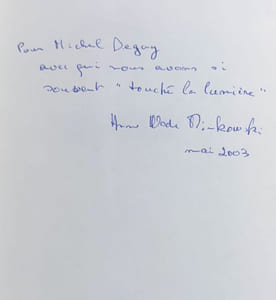 Pour Michel Deguy
avec qui nous avons si
souvent "touché la lumière"
Anne Wade Minkowski
mai 2003